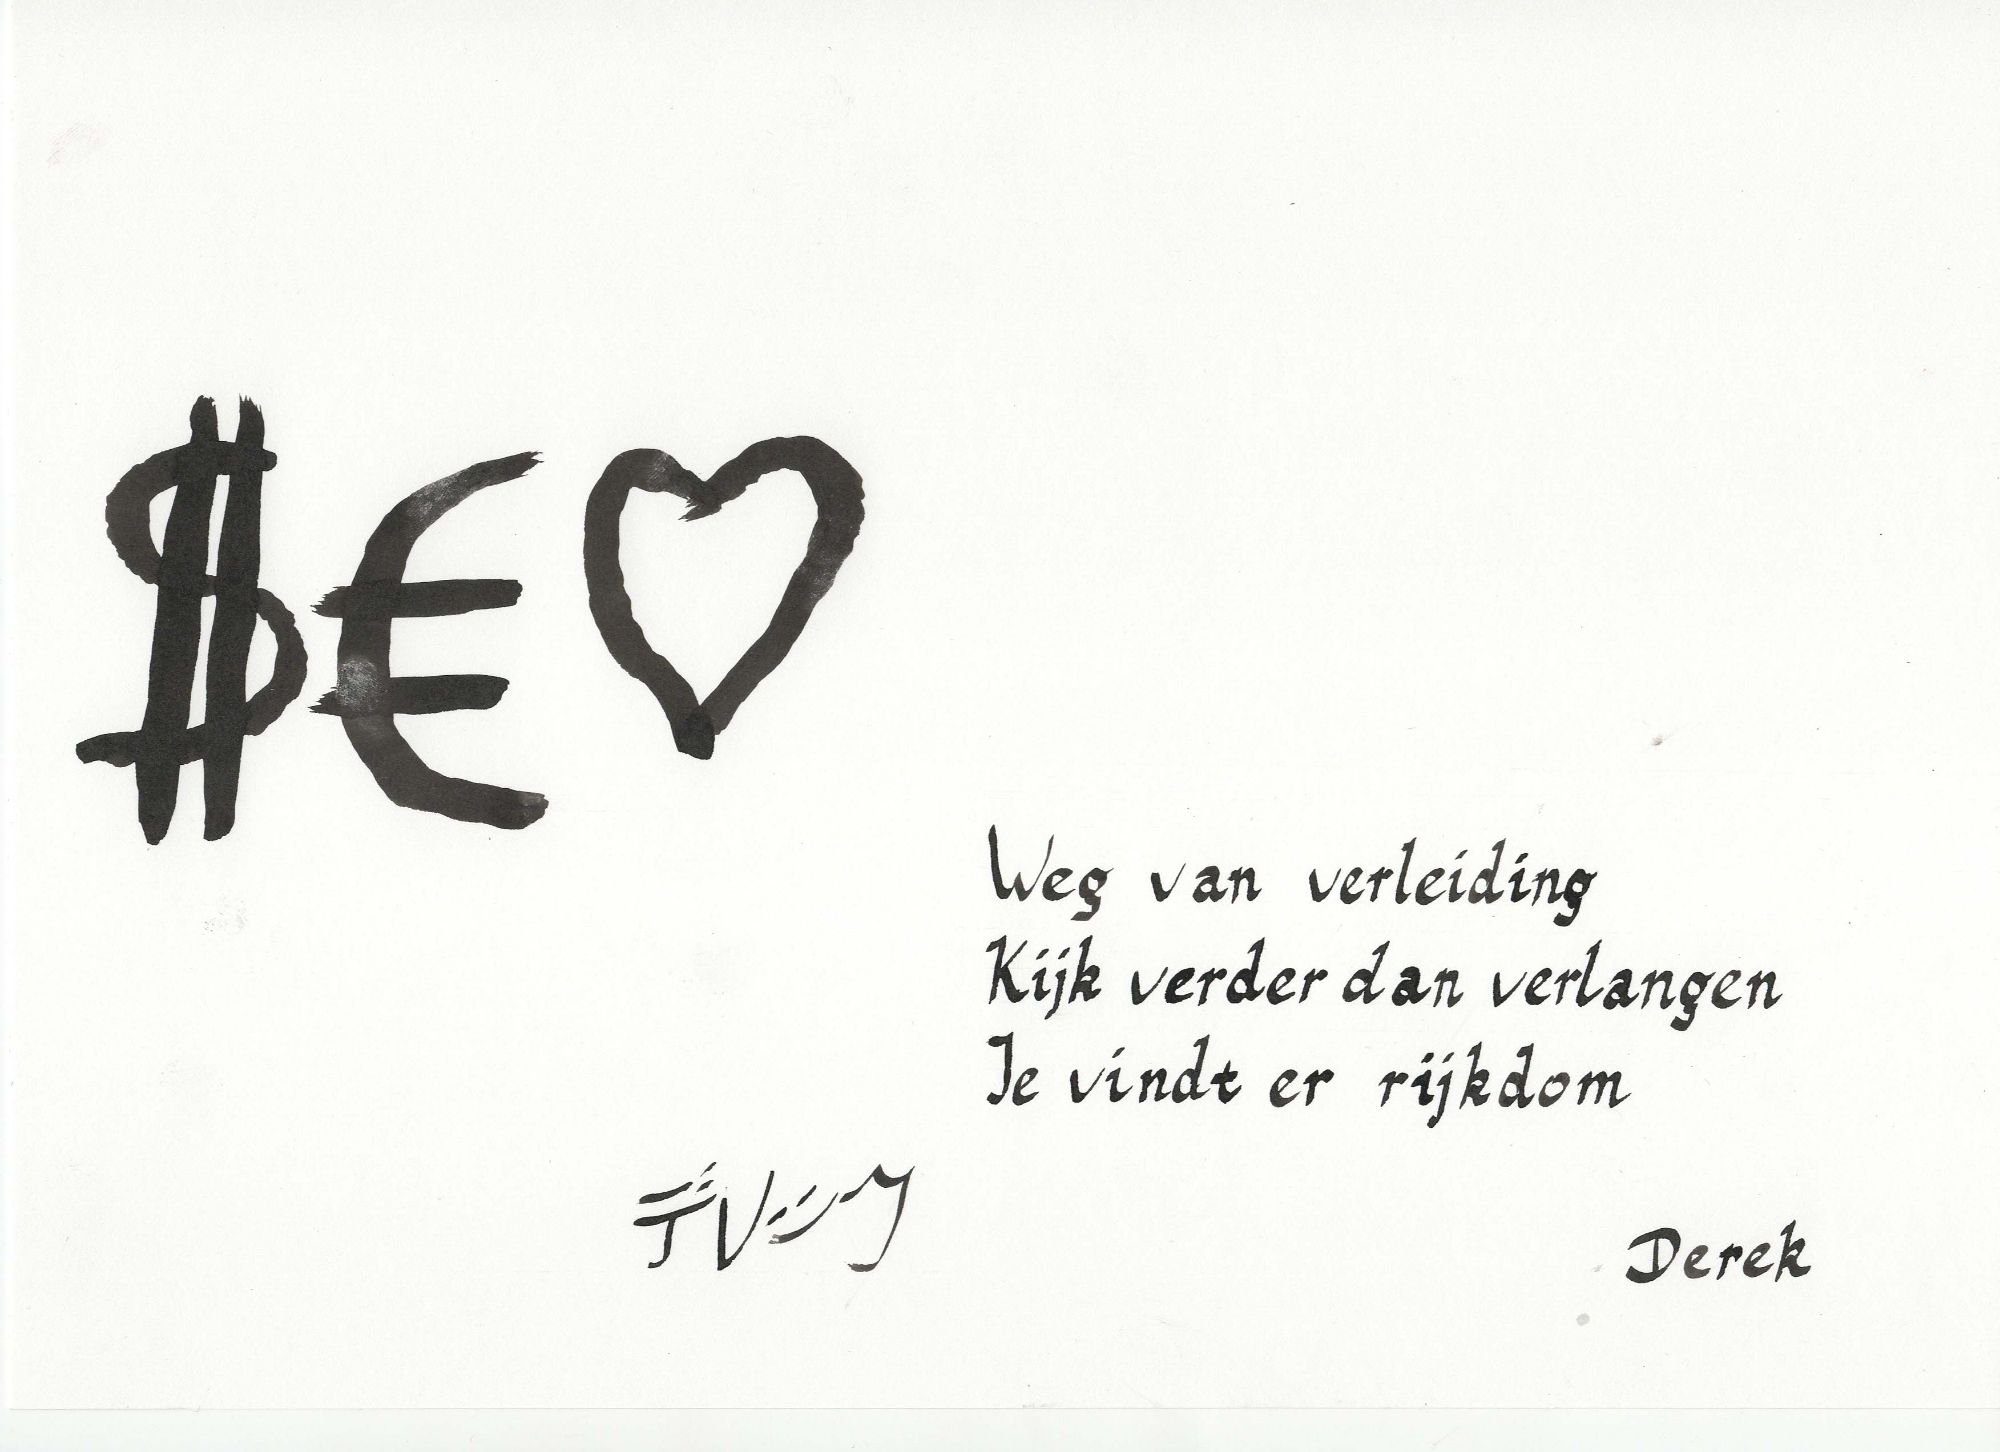 $€♡
Weg van verleiding
Kijk verder dan verlangen
Je vindt er rijkdom
Derek